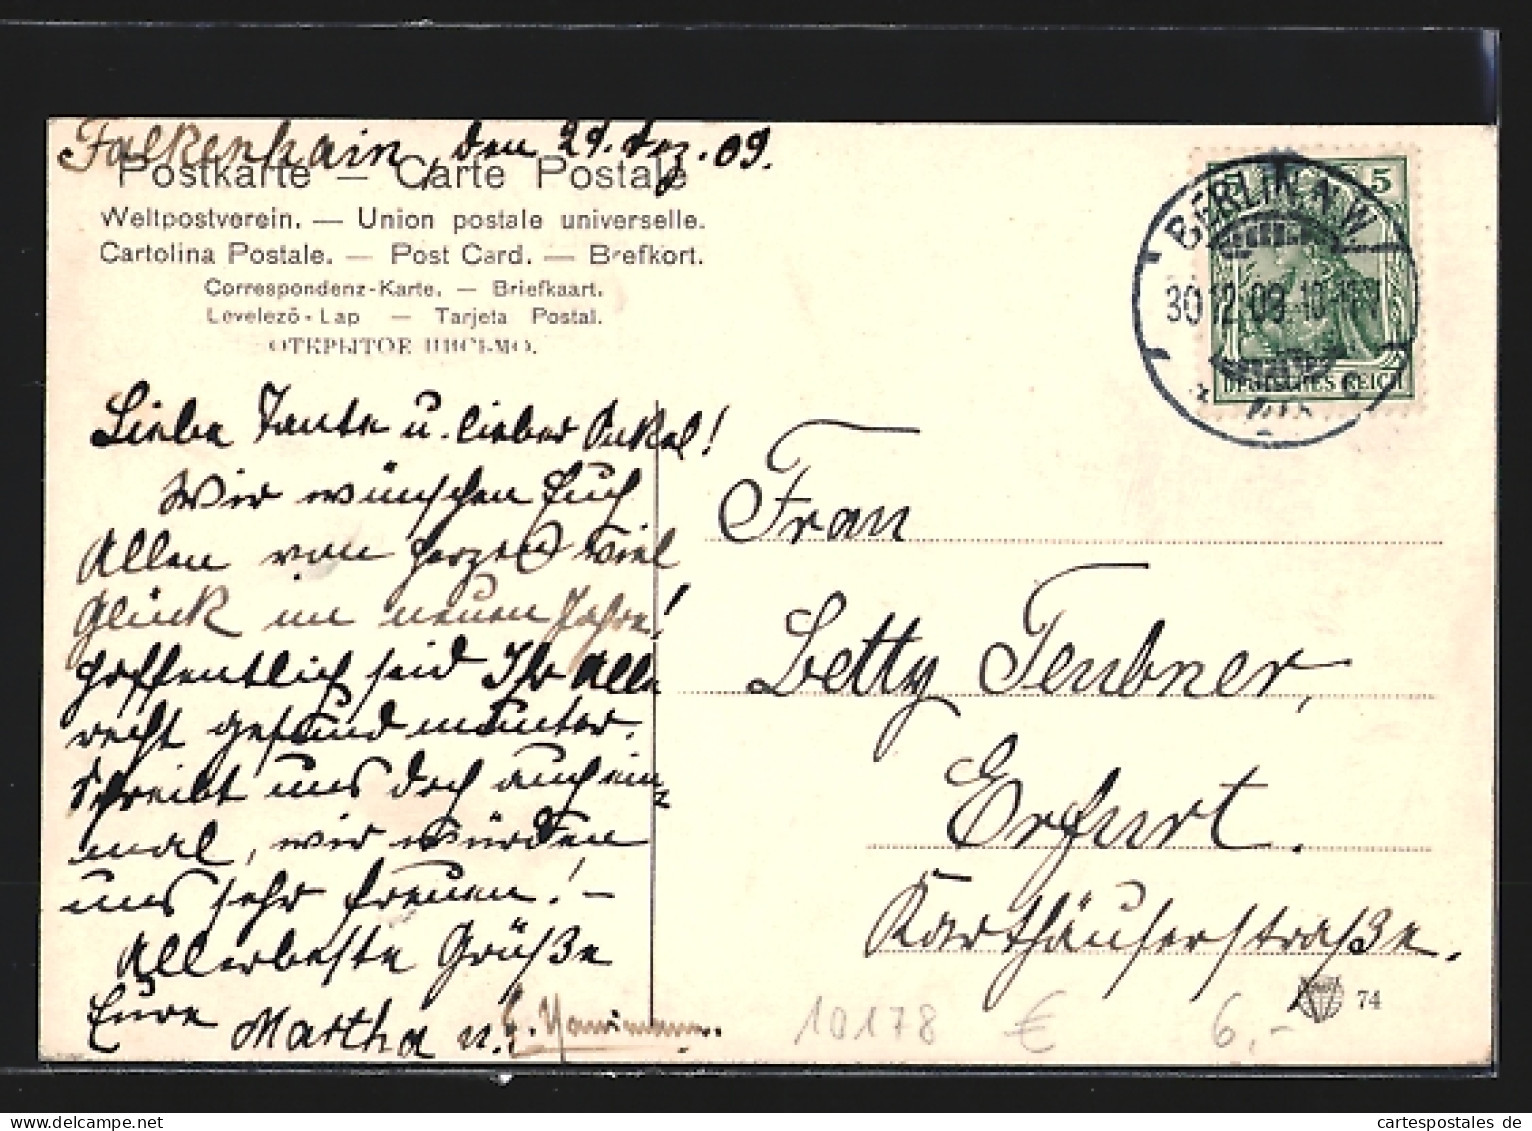 Falkenhain, den 29. Dez. 09.
Postkarte — Carte Postale
Weltpostverein. — Union postale universelle.
Cartolina Postale. — Post Card. — Brefkort.
Correspondenz-Karte. — Briefkaart.
Levelezö-Lap — Tarjeta Postal.
ОТКРЫТОЕ ПИСЬМО.
5
BERLIN N.W.
30 12. 09.
DEUTSCHES REICH
Liebe Tante u. lieber Onkel!
Wir wünschen Euch
Allen von Herzen viel
Glück im neuen Jahre!
Hoffentlich seid Ihr Alle
recht gesund munter.
Schreibt uns doch auch ein-
mal, wir würden
uns sehr freuen! –
Allerbeste Grüße
Eure Martha u.
Frau
Betty Teubner,
Erfurt.
Karthäuserstraße.
74
10178 € 6,-
cartespostales de